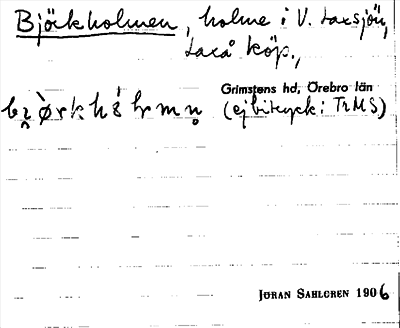 Bjöckholmen, holme i V. Laxsjön,
Laxå köp.,
Grimstens hd, Örebro län
(ej bitryck: TrMS)
JÖRAN SAHLGREN 1906